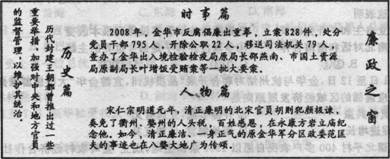 廉政之窗
时事篇
2008年，金华市反腐倡廉出重拳，立案828件，处分
党员干部795人，开除公职22人，移送司法机关79人，
查办了金华出入境检验检疫局原局长邵燕南、市国土资源
局原副局长叶增饭受贿案等一批大要案。
人物篇
宋仁宗明道元年，清正廉明的北宋官员胡则犯颜极谏，
奏免了衢州、婺州的人头税，百姓感恩，在永康方岩立庙纪
念他。如今，清正廉洁、一身正气的原金华军分区政委范匡
夫的事迹也在八婺大地广为传颂。
历史篇
历代封建王朝都曾推出过一些
重要举措，加强对中央和地方官员
的监督管理，以维护其统治。